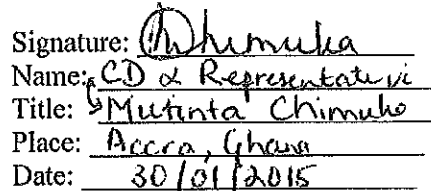 Signature: Chimuka
Name: CD & Representative
Title: Mutinta Chimuka
Place: Accra, Ghana
Date: 30/01/2015